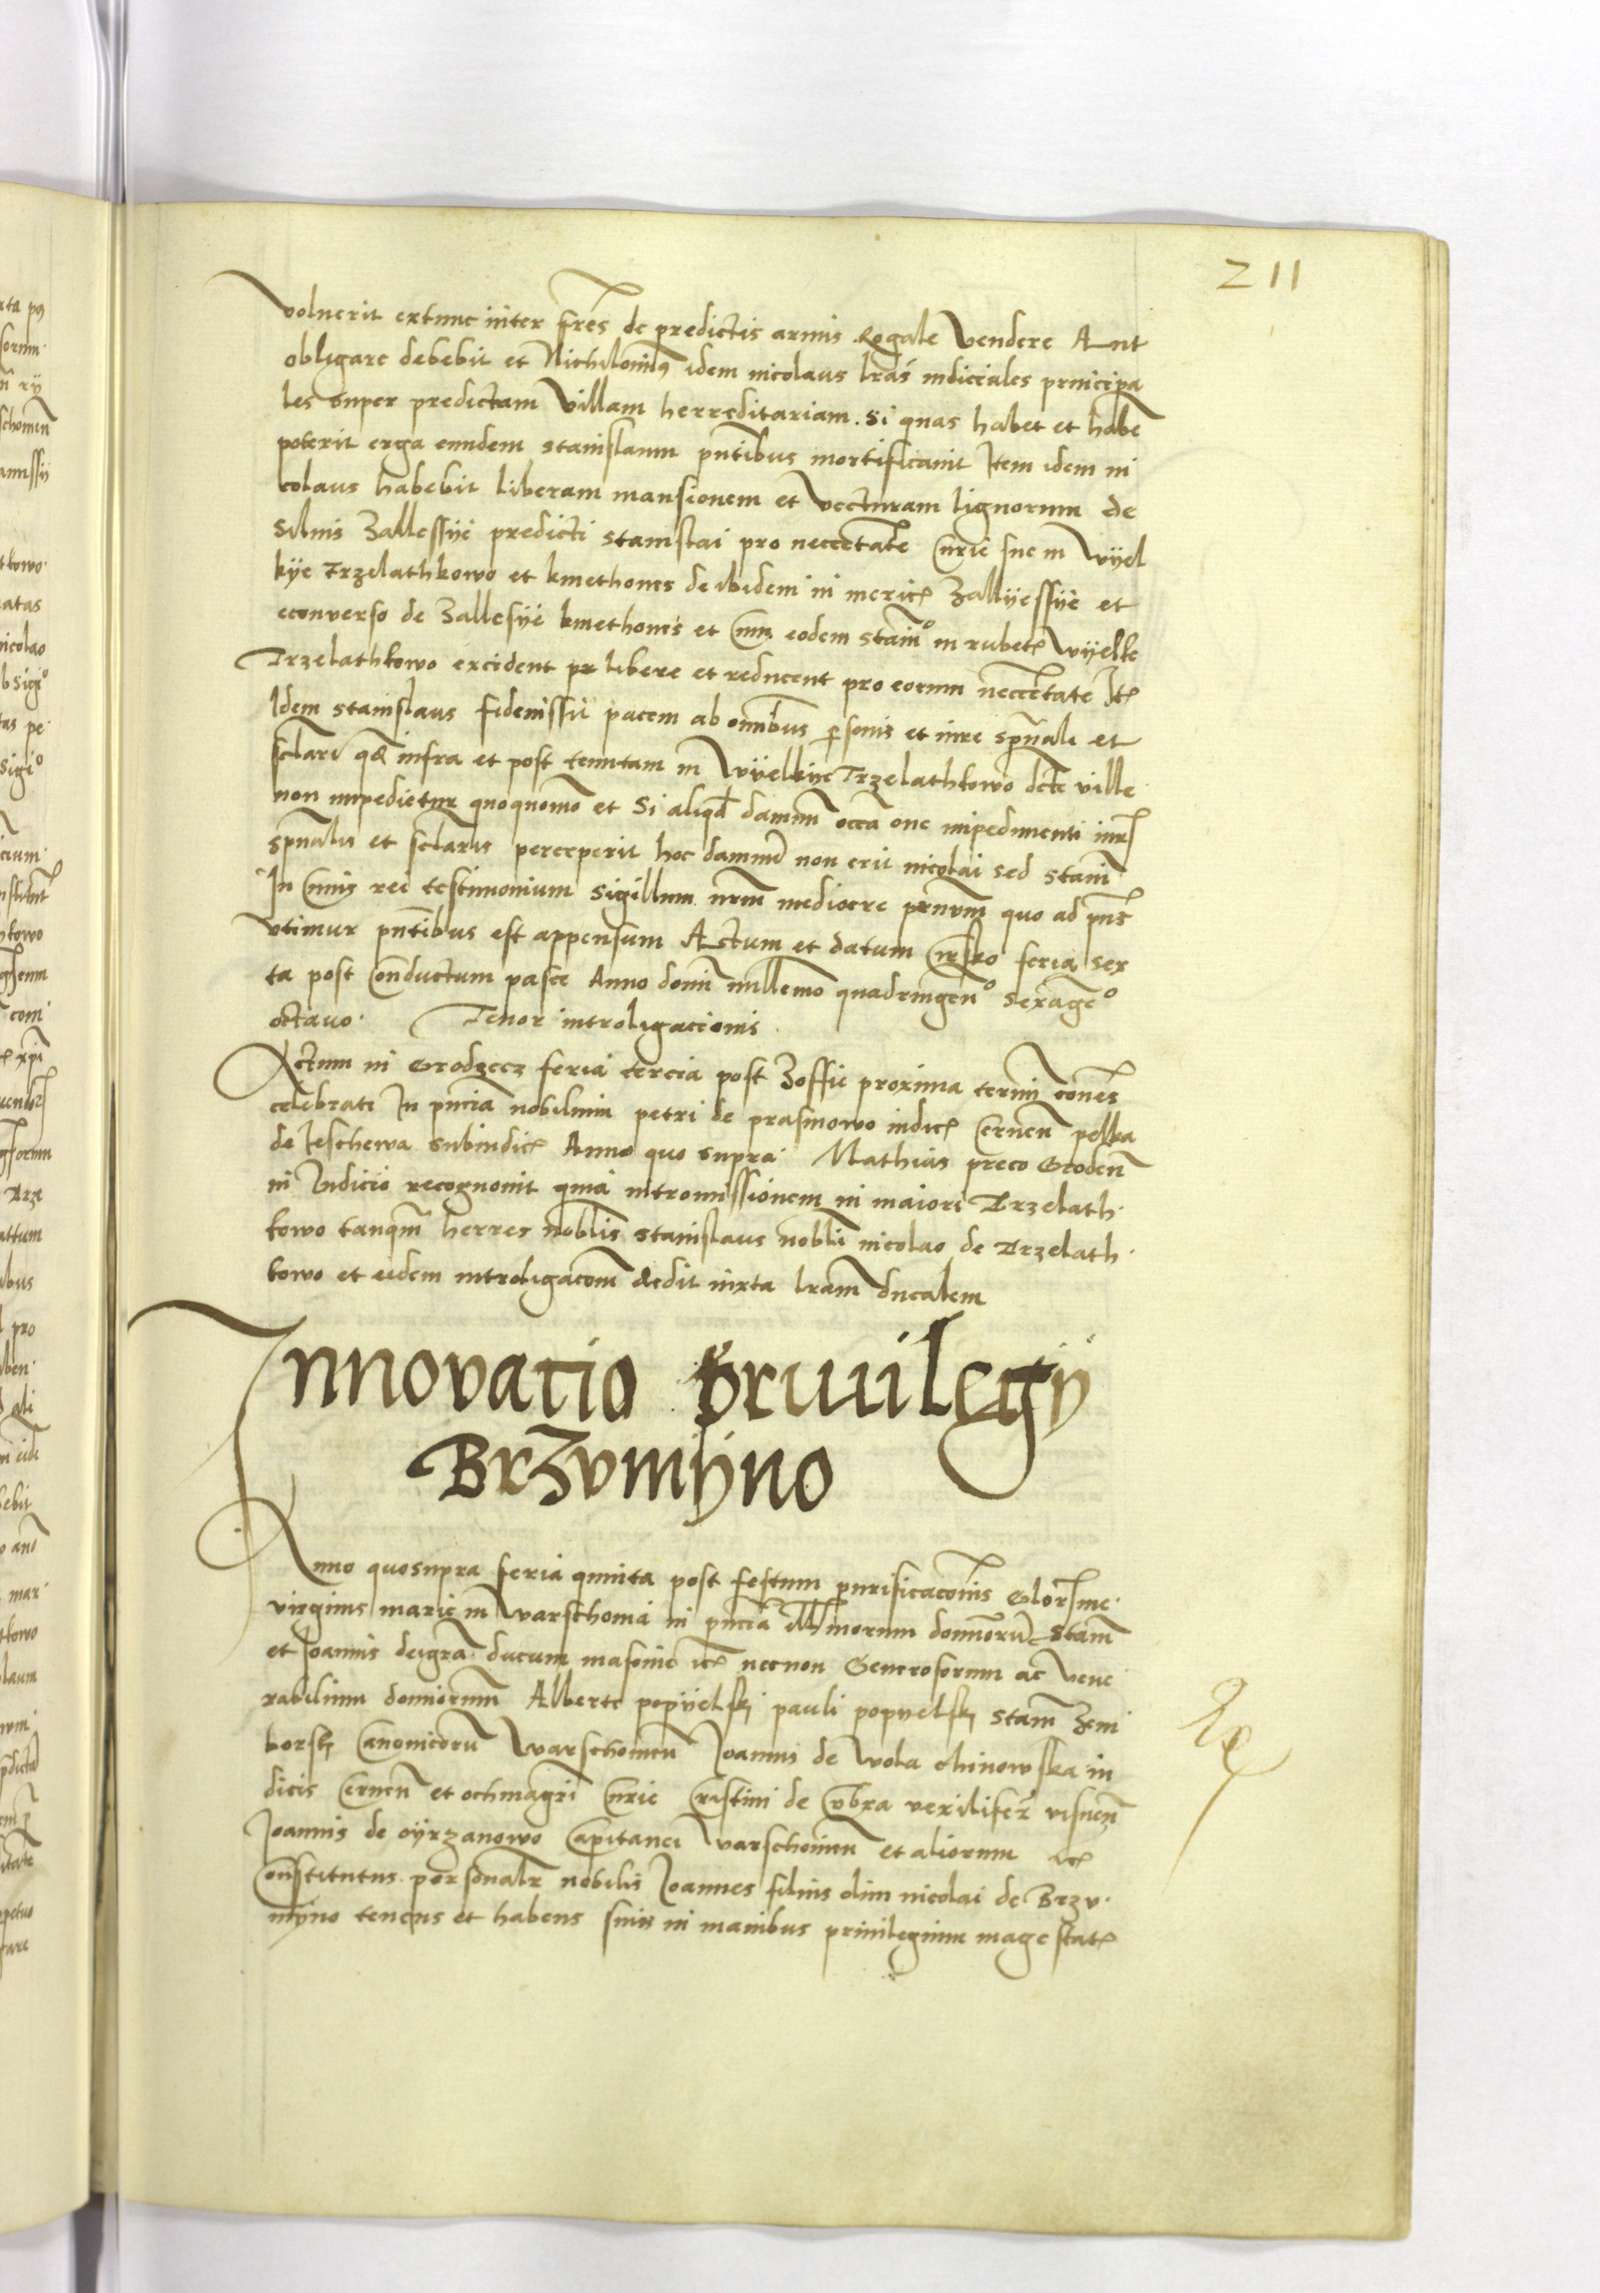 211
voluerit extunc inter fres de predictis armis Rogale vendere Aut
obligare debebit et Nichilominus idem nicolaus lras iudiciales principa
les super predictam villam herreditariam. Si quas habet et habe
poterit erga eundem stanislaum pntibus mortificauit Item idem ni
colaus habebit liberam mansionem et vecturam lignorum de
siluis Zallessye predicti stanislai pro neccetate Curie sue in Wyel
kye Trzelathkowo et kmethones de ibidem in mericz Zallyessye et
econuerso de Zallesye kmethones et Cum eodem stanio in rubetz Wyelke
Trzelathkowo excident pr libere et reducent pro eorum neccetate Itz
Idem stanislaus fideiussit pacem ab omnibus personis et iure spuali et
sclari qd infra et post tenutam in Wyelkye Trzelathkowo dcte ville
non impedietur quoquomo et Si aliqd damnu occaone impedimenti iuris
spualis et sclaris perceperit hoc damnu non erit nicolai sed stani
In Cuius rei testimonium Sigillum nrm mediocre pruum quo ad pns
vtimur pntibus est appensum Actum et datum Cirsko feria sex
ta post Conductum pasce Anno domi millemo quadringeno sexageo
octauo. Tenor introligacionis.
Actum in Grodzecz feria tercia post Zoffie proxima termi cones
celebrati In pncia nobilium petri de prasmowo iudicz Cernen pelka
de Ieschewa subiudicz Anno quo supra. Mathias preco Groden
in Iudicio recognouit quia intromissionem in maiori Trzelath.
kowo tanqm herres noblis stanislaus nobli nicolao de Trzelath.
kowo et eidem introligacom dedit iuxta lram ducalem
Innovatio Priuilegij
Brzvmyno
Anno quosupra feria quinta post festum purificaconis Glorsme.
virginis marie in Warschouia in pncia Illmorum domnoru Stani
et Joannis deigra ducum masouie icz necnon Generosorum ac Vene
rabilium domiorum Alberti popyelsky pauli popyelsky Stani Zem
borsky Canonicoru Warschouien Joannis de Wola chinowska iu
dicis Cernen et ochmagri Curie Cristini de Cobra vexiliferi visnen
Joannis de oyrzanowo Capitanei Warschouien et aliorum icz
Constitutus personalr nobilis Joannes filius olim nicolai de Brzv.
myno tenens et habens suis in manibus priuilegium mage statz